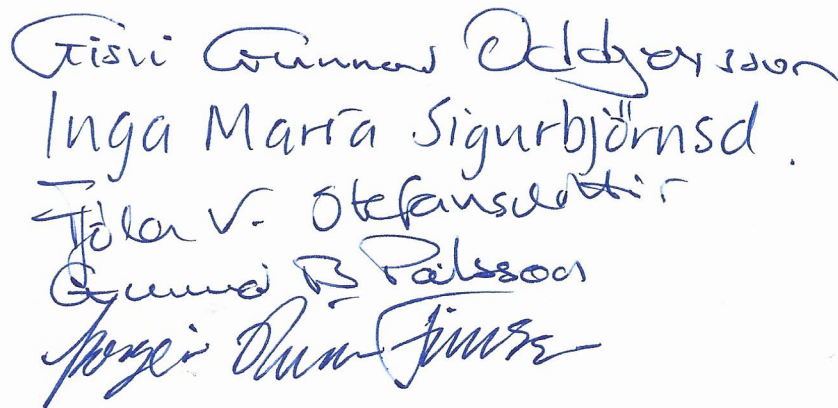 Gísli Gunnar Oddgeirsson
Inga María Sigurbjörnsd.
Fjóla V. Stefánsdóttir
Gunnar B Pálsson
Þorgeir Rúnar Finnsson